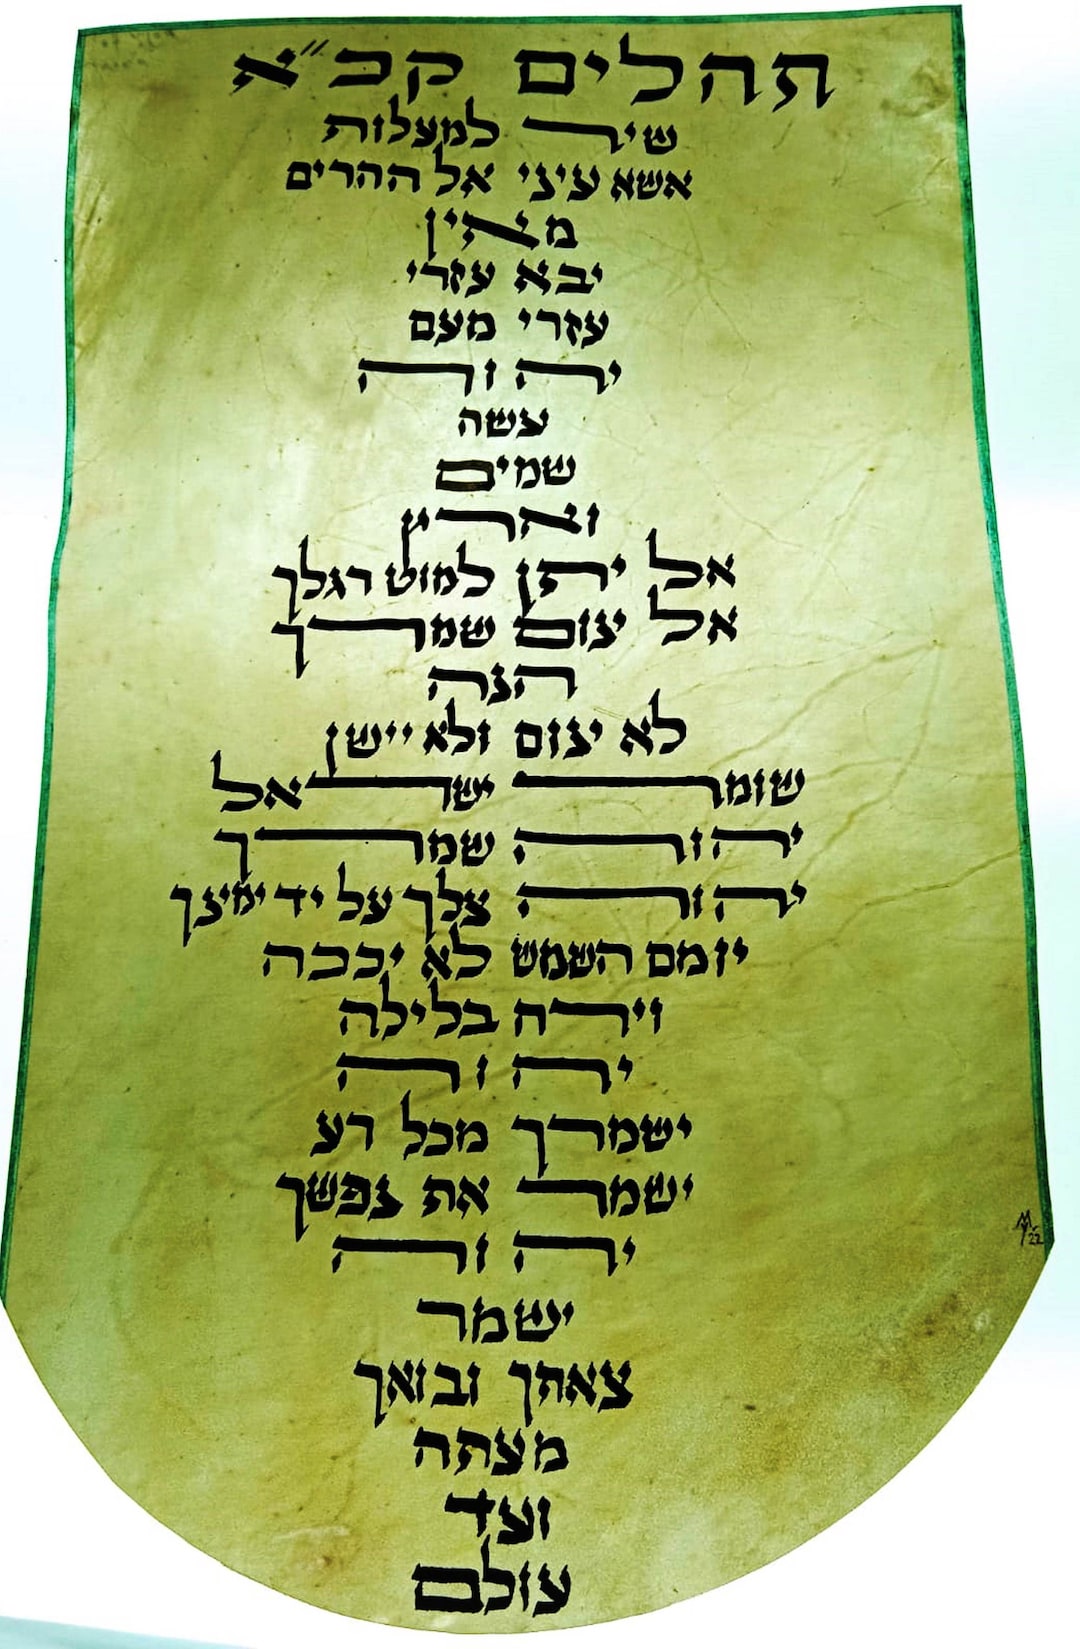 תהלים קכ״א
שיר למעלות
אשא עיני אל ההרים
מאין
יבא עזרי
עזרי מעם
יהוה
עשה
שמים
וארץ
אל יתן למוט רגלך
אל ינום שמרך
הנה
לא ינום ולא יישן
שומר ישראל
יהוה שמרך
יהוה צלך על יד ימינך
יומם השמש לא יככה
וירח בלילה
יהוה
ישמרך מכל רע
ישמר את נפשך
יהוה
ישמר
צאתך ובואך
מעתה
ועד
עולם
22